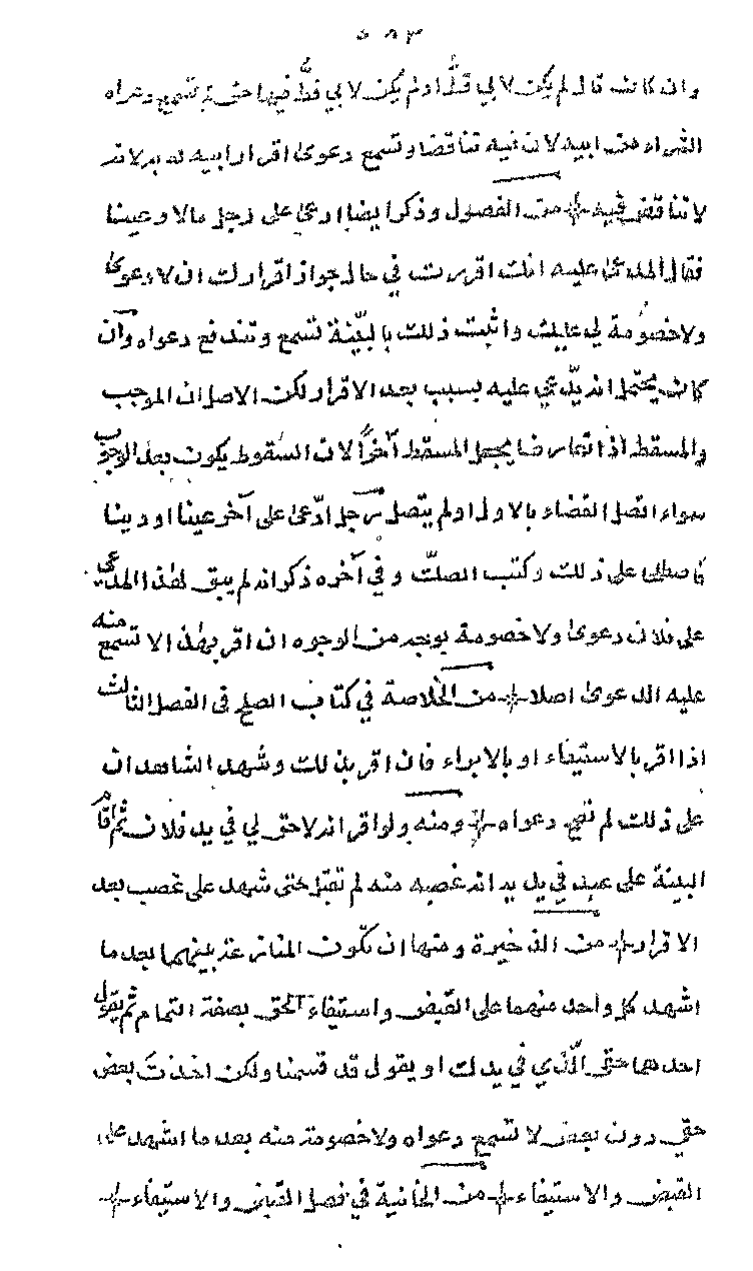 ٥٨٣
وان كانت قال لم يكن لابي قط او لم يكن لابي قط فيها حق لم تسمع دعواه
الشراء من ابيه لان فيه تناقضا وتسمع دعوى اقرار ابيه له به لانه
لا تناقض فيه من الفصول وذكر ايضا ادعى على رجل مالا وعينا
فقال المدعى عليه انك اقررت في حال جواز اقرارك ان لا دعوى
ولا خصومة لي عليك واثبت ذلك بالبينة تسمع وتندفع دعواه وان
كان يحتمل انه يدعي عليه بسبب بعد الاقرار لكن الاصل ان الموجب
والمسقط اذا تعارضا يجعل المسقط آخرًا لان السقوط يكون بعد الوجوب
سواء اتصل القضاء بالاول او لم يتصل رجل ادّعى على آخر عينا او دينا
فاصطلحا على ذلك وكتب الصكّ وفي آخره ذكر انه لم يبق لهذا المدعي
على فلان دعوى ولا خصومة بوجه من الوجوه ان اقر بهذا لا تسمع منه
عليه الدعوى اصلا من الخلاصة في كتاب الصلح في الفصل الثالث
اذا اقر بالاستيفاء او بالابراء فان اقر بذلك وشهد الشاهدان
على ذلك لم تصح دعواه ومنه ولو اقر انه لا حق لي في يد فلان ثم اقام
البينة على عبد في يد يد انه غصبه منه لم تقبل حتى شهد على غصب بعد
الاقرار من الذخيرة ومنها ان تكون المنازعة بينهما بعد ما
اشهد كل واحد منهما على القبض واستيفاء الحق بصفة التمام ثم يقول
احدهما حقي الّذي في يدك او يقول قد قسمنا ولكن اخذت بعض
حقي دون بعض لا تسمع دعواه ولا خصومة منه بعد ما اشهد على
القبض والاستيفاء من الخانية في فصل القبض والاستيفاء